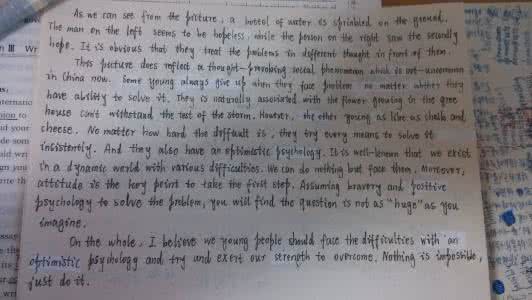 As we can see from the picture, a bottel of water is sprinkled on the ground.
The man on the left seems to be hopeless, while the person on the right saw the secondly
hope. It is obvious that they treat the problems in different thought in front of them.
This picture does reflect a thought-provoking social phenomenon which is not uncommon
in China now. Some young always give up when they face problem no matter whther they
have ability to solve it. They is naturally associated with the flower growing in the gree
house can't withstand the test of the storm. However, the other young as like as chalk and
cheese. No matter how hard the difficult is, they try every means to solve it
insistently. And they also have an optimistic psychology. It is well-known that we exist
in a dynamic world with various difficulties. We can do nothing but face them. Moreover,
attitude is the key point to take the first step. Assuming bravery and positive
psychology to solve the problem, you will find the question is not as "huge" as you
imagine.
On the whole, I believe we young people should face the difficulties with an
optimistic psychology and try and exert our strength to overcome. Nothing is impossible,
just do it.